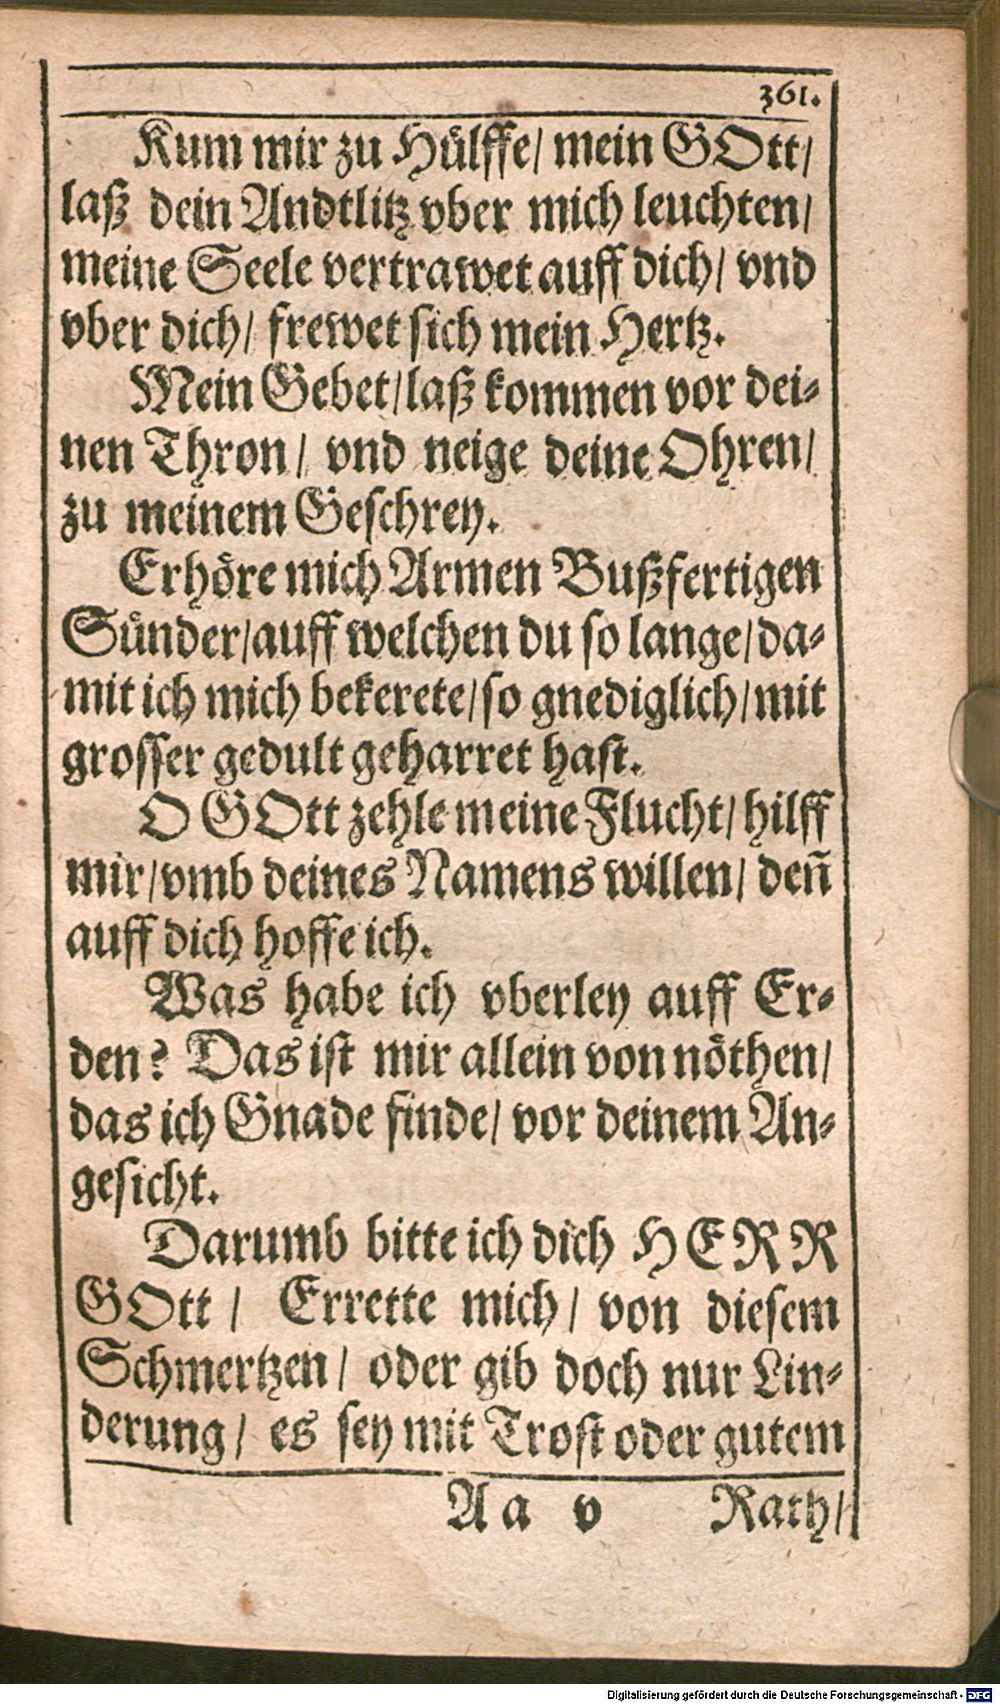 361.
Kum mir zu Hülffe/ mein GOtt/
laß dein Andtlitz vber mich leuchten/
meine Seele vertrawet auff dich/ vnd
vber dich/ frewet sich mein Hertz.
Mein Gebet/ laß kommen vor dei-
nen Thron/ vnd neige deine Ohren/
zu meinem Geschrey.
Erhöre mich Armen Bußfertigen
Sünder/ auff welchen du so lange/ da-
mit ich mich bekerete/ so gnediglich/ mit
grosser gedult geharret hast.
O GOtt zehle meine Flucht/ hilff
mir/ vmb deines Namens willen/ deñ
auff dich hoffe ich.
Was habe ich vberley auff Er-
den? Das ist mir allein von nöthen/
das ich Gnade finde/ vor deinem An-
gesicht.
Darumb bitte ich dich HERR
GOtt/ Errette mich/ von diesem
Schmertzen/ oder gib doch nur Lin-
derung/ es sey mit Trost oder gutem
A a v Rath/
Digitalisierung gefördert durch die Deutsche Forschungsgemeinschaft - DFG